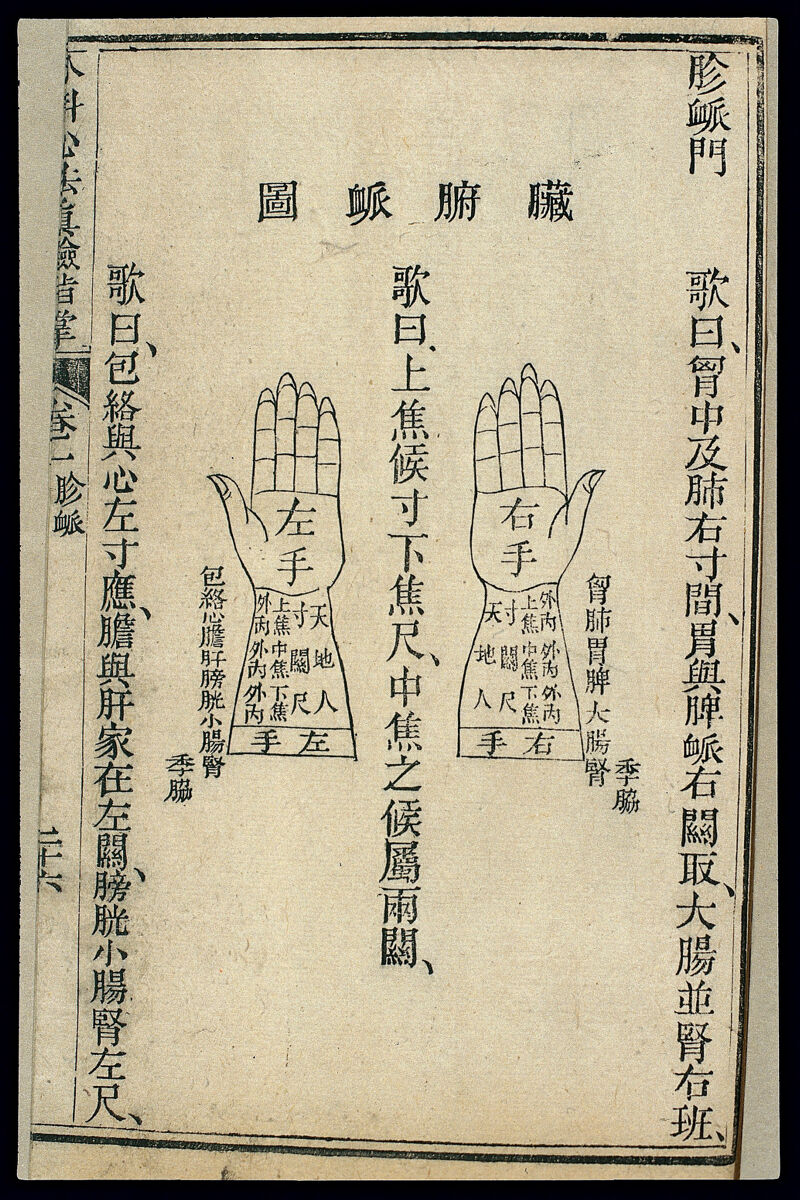 胗衇門
臟腑衇圖
歌曰、胷中及肺右寸間、胃與脾衇右關取、大腸並腎右班、
右手
天寸上焦外內
地關中焦外內
人尺下焦外內
右手
胷肺胃脾大腸腎
季脇
歌曰、上焦候寸下焦尺、中焦之候屬兩關、
左手
天寸上焦外內
地關中焦外內
人尺下焦外內
左手
包絡心膽肝膀胱小腸腎
季脇
歌曰、包絡與心左寸應、膽與肝家在左關、膀胱小腸腎左尺、
外科心法真驗指掌
卷二
胗衇
二十六